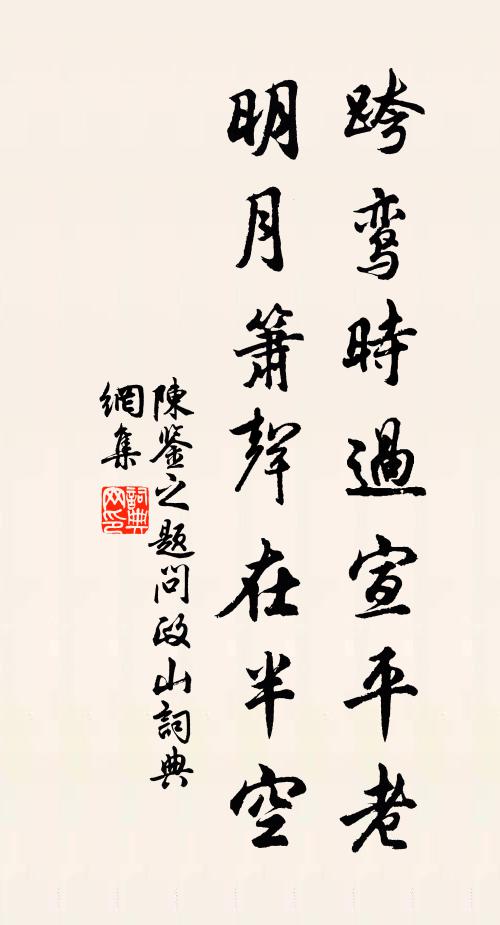 跨鸾時過宣平老
明月簫聲在半空
陳鉴之題問政山詞典
網集
詞典
网印